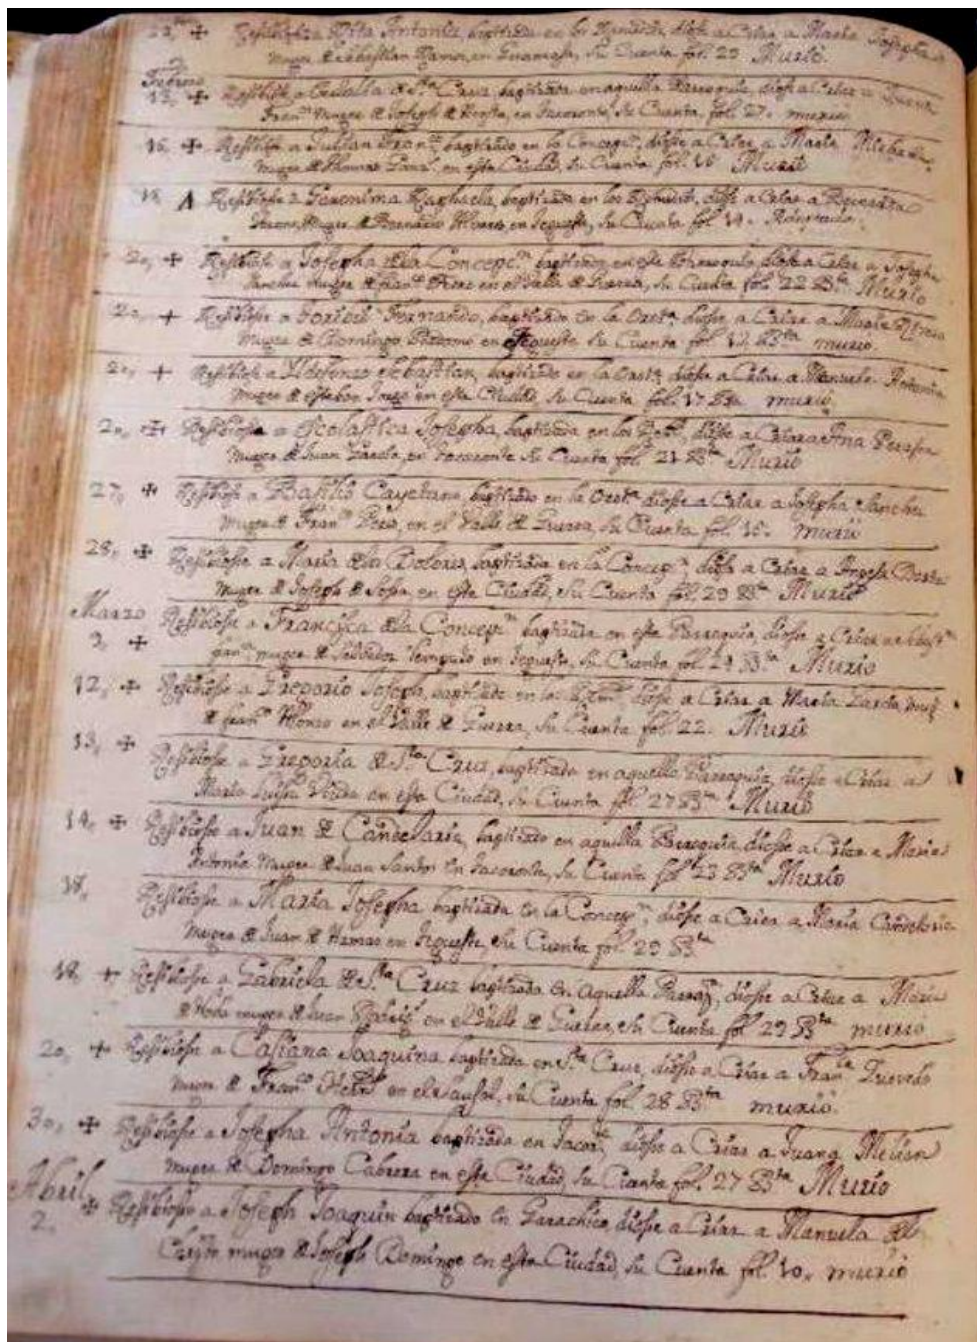 ✠ Resibiose a Rita Antonia, baptizada en los Remedios, diose a Criar a Maria Josepha
muger de Sebastian Ramos, en su Cuenta fol. 29 Murió.
Febrero
13, ✠ Resibiose a Eulalia de Sta Cruz, baptizada en aquella Parroquia, diose a Criar a Juana
Franca muger de Joseph de en Tacoronte, su Cuenta fol. 27. murió
16, ✠ Resibiose a Julian Franco baptizado en la Concepn, diose a Criar a Maria
muger de Thomas en esta Ciudad, su Cuenta fol. 16 Murió
18 A Resibiose a Geronima Raphaela, baptizada en los Remedios, diose a Criar a Bernarda
muger de Bernardo Alvares, en Tegueste, su Cuenta fol. 19. Adoptada.
20, ✠ Resibiose a Josepha de la Concepcn baptizada en esta Parroquia, diose a Criar a Josepha
Sanches muger de Franco Peres en el Valle de Guerra, su Cuenta fol. 22 Bta Murió
20, + Resibiose a Toribio Fernando, baptizado en la Orota, diose a Criar a Maria
muger de Domingo Palermo en Tegueste su Cuenta fol. 12 Bta murió.
20, + Resibiose a Ildefonso Sebastian, baptizado en la Orota diose a Criar a Manuela Antonia
muger de Esteban en esta Ciudad, su Cuenta fol. 17 Bta murió
20, ✠ Resibiose a Escolastica Josepha, baptizada en los diose a Criar a Ana
muger de Juan Garcia, en Tacoronte su Cuenta fol. 21 Bta Murió
27, ✠ Resibiose a Basilio Cayetano, baptizado en la Orota diose a Criar a Josepha Sanches
muger de Franco Peres, en el Valle de Guerra, su Cuenta fol. 16. murió
28, ✠ Resibiose a Maria de los Dolores, baptizada en la Concepn, diose a Criar a Angela
muger de Joseph de Sosa, en esta Ciudad, su Cuenta fol. 29 Bta Murió
Marzo
9, ✠ Resibiose a Francisca de la Concepcn baptizada en esta Parroquia, diose a Criar a
muger de Salvador en Tegueste, su Cuenta fol. 24 Bta Murió
12, ✠ Resibiose a Gregorio Joseph, baptizado en los diose a Criar a Maria Garcia mugr
de Franco Alonso en el Valle de Guerra, su Cuenta fol. 22. Murió
13, ✠ Resibiose a Gregoria de Sta Cruz, baptizada en aquella Parroquia, diose a Criar a
Maria Luisa Viuda en esta Ciudad, su Cuenta fol. 27 Bta Murió
14, ✠ Resibiose a Juan de Candelaria, baptizado en aquella Parroquia diose a Criar a Maria
Antonia muger de Juan Santos en Tacoronte, su Cuenta fol. 23 Bta Murió
18, Resibiose a Maria Josepha baptizada en la Concepn, diose a Criar a Maria Candelaria
muger de Juan de Hamas en Tegueste, su Cuenta fol. 29 Bta
18, + Resibiose a Gabriela de Sta Cruz baptizada en aquella Parroqa, diose a Criar a Maria
muger de Juan Rodrigs en el Valle de Guerra, su Cuenta fol. 29 Bta murió
20, + Resibiose a Casiana Joaquina baptizada en Sta Cruz, diose a Criar a Franca Quevedo
muger de Franco en el Sausal, su Cuenta fol. 28 Bta murió.
30, ✠ Resibiose a Josepha Antonia baptizada en Tacorte diose a Criar a Juana Melian
muger de Domingo Cabrera en esta Ciudad, su Cuenta fol. 27 Bta Murió
Abril
2. ✠ Resibiose a Joseph Joaquin baptizado en Garachico, diose a Criar a Manuela del
muger de Joseph Domingo en esta Ciudad, su Cuenta fol. 10. murió